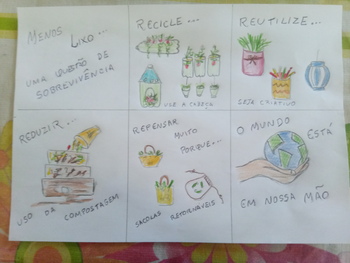 MENOS LIXO...
UMA QUESTÃO DE
SOBREVIVÊNCIA
RECICLE...
USE A CABEÇA
REUTILIZE...
SEJA CRIATIVO
REDUZIR...
USO DA COMPOSTAGEM
REPENSAR
MUITO
PORQUE...
SACOLAS RETORNÁVEIS
O MUNDO
ESTÁ
EM NOSSA MÃO